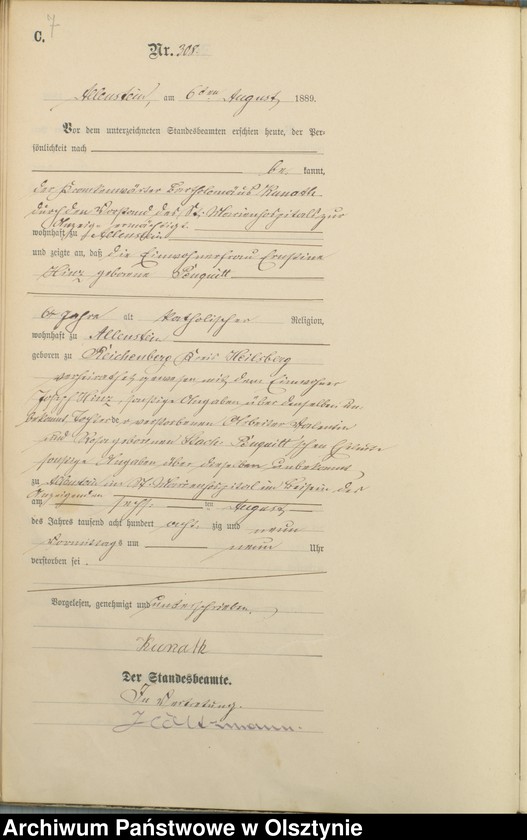 C.
7
Nr. 308.
Allenstein, am 6ten August 1889.
Vor dem unterzeichneten Standesbeamten erschien heute, der Per-
sönlichkeit nach
be kannt,
der Krankenwärter Bartholomäus Kunath
durch den Vorstand des St. Marienhospitals zur
Anzeige ermächtigt.
wohnhaft zu Allenstein
und zeigte an, daß die Einwohnerfrau Ernstine
Hinz geborene Penquitt
Jahre alt katholischer Religion,
wohnhaft zu Allenstein
geboren zu Reichenberg Kreis Heilsberg
verheirathet gewesen mit dem Einwohner
Joseph Hinz, sonstige Angaben über denselben un-
bekannt, Tochter der verstorbenen Arbeiter Valentin
und Rosa geborenen Penquitt'schen Eheleute
sonstige Angaben über dieselben unbekannt
zu Allenstein im St. Marienhospital im Beisein des
Anzeigenden
am sechsten August
des Jahres tausend acht hundert acht zig und neun
Vormittags um neun Uhr
verstorben sei.
Vorgelesen, genehmigt und unterschrieben.
Kunath
Der Standesbeamte.
In Vertretung.
Archiwum Państwowe w Olsztynie